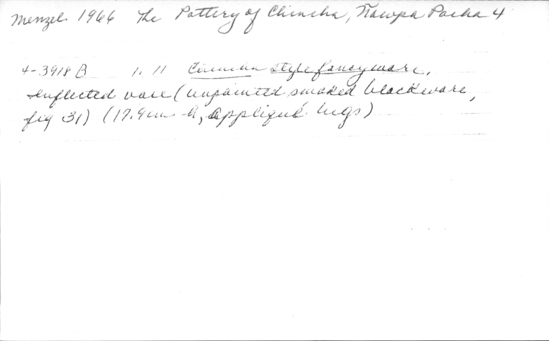 Menzel 1966 The Pottery of Chincha, Ñawpa Pacha 4
4-3918 B p. 11 style fancyware,
inflected vase (unpainted smoked blackware,
fig 31) (17.9 cm h, appliqué lugs)